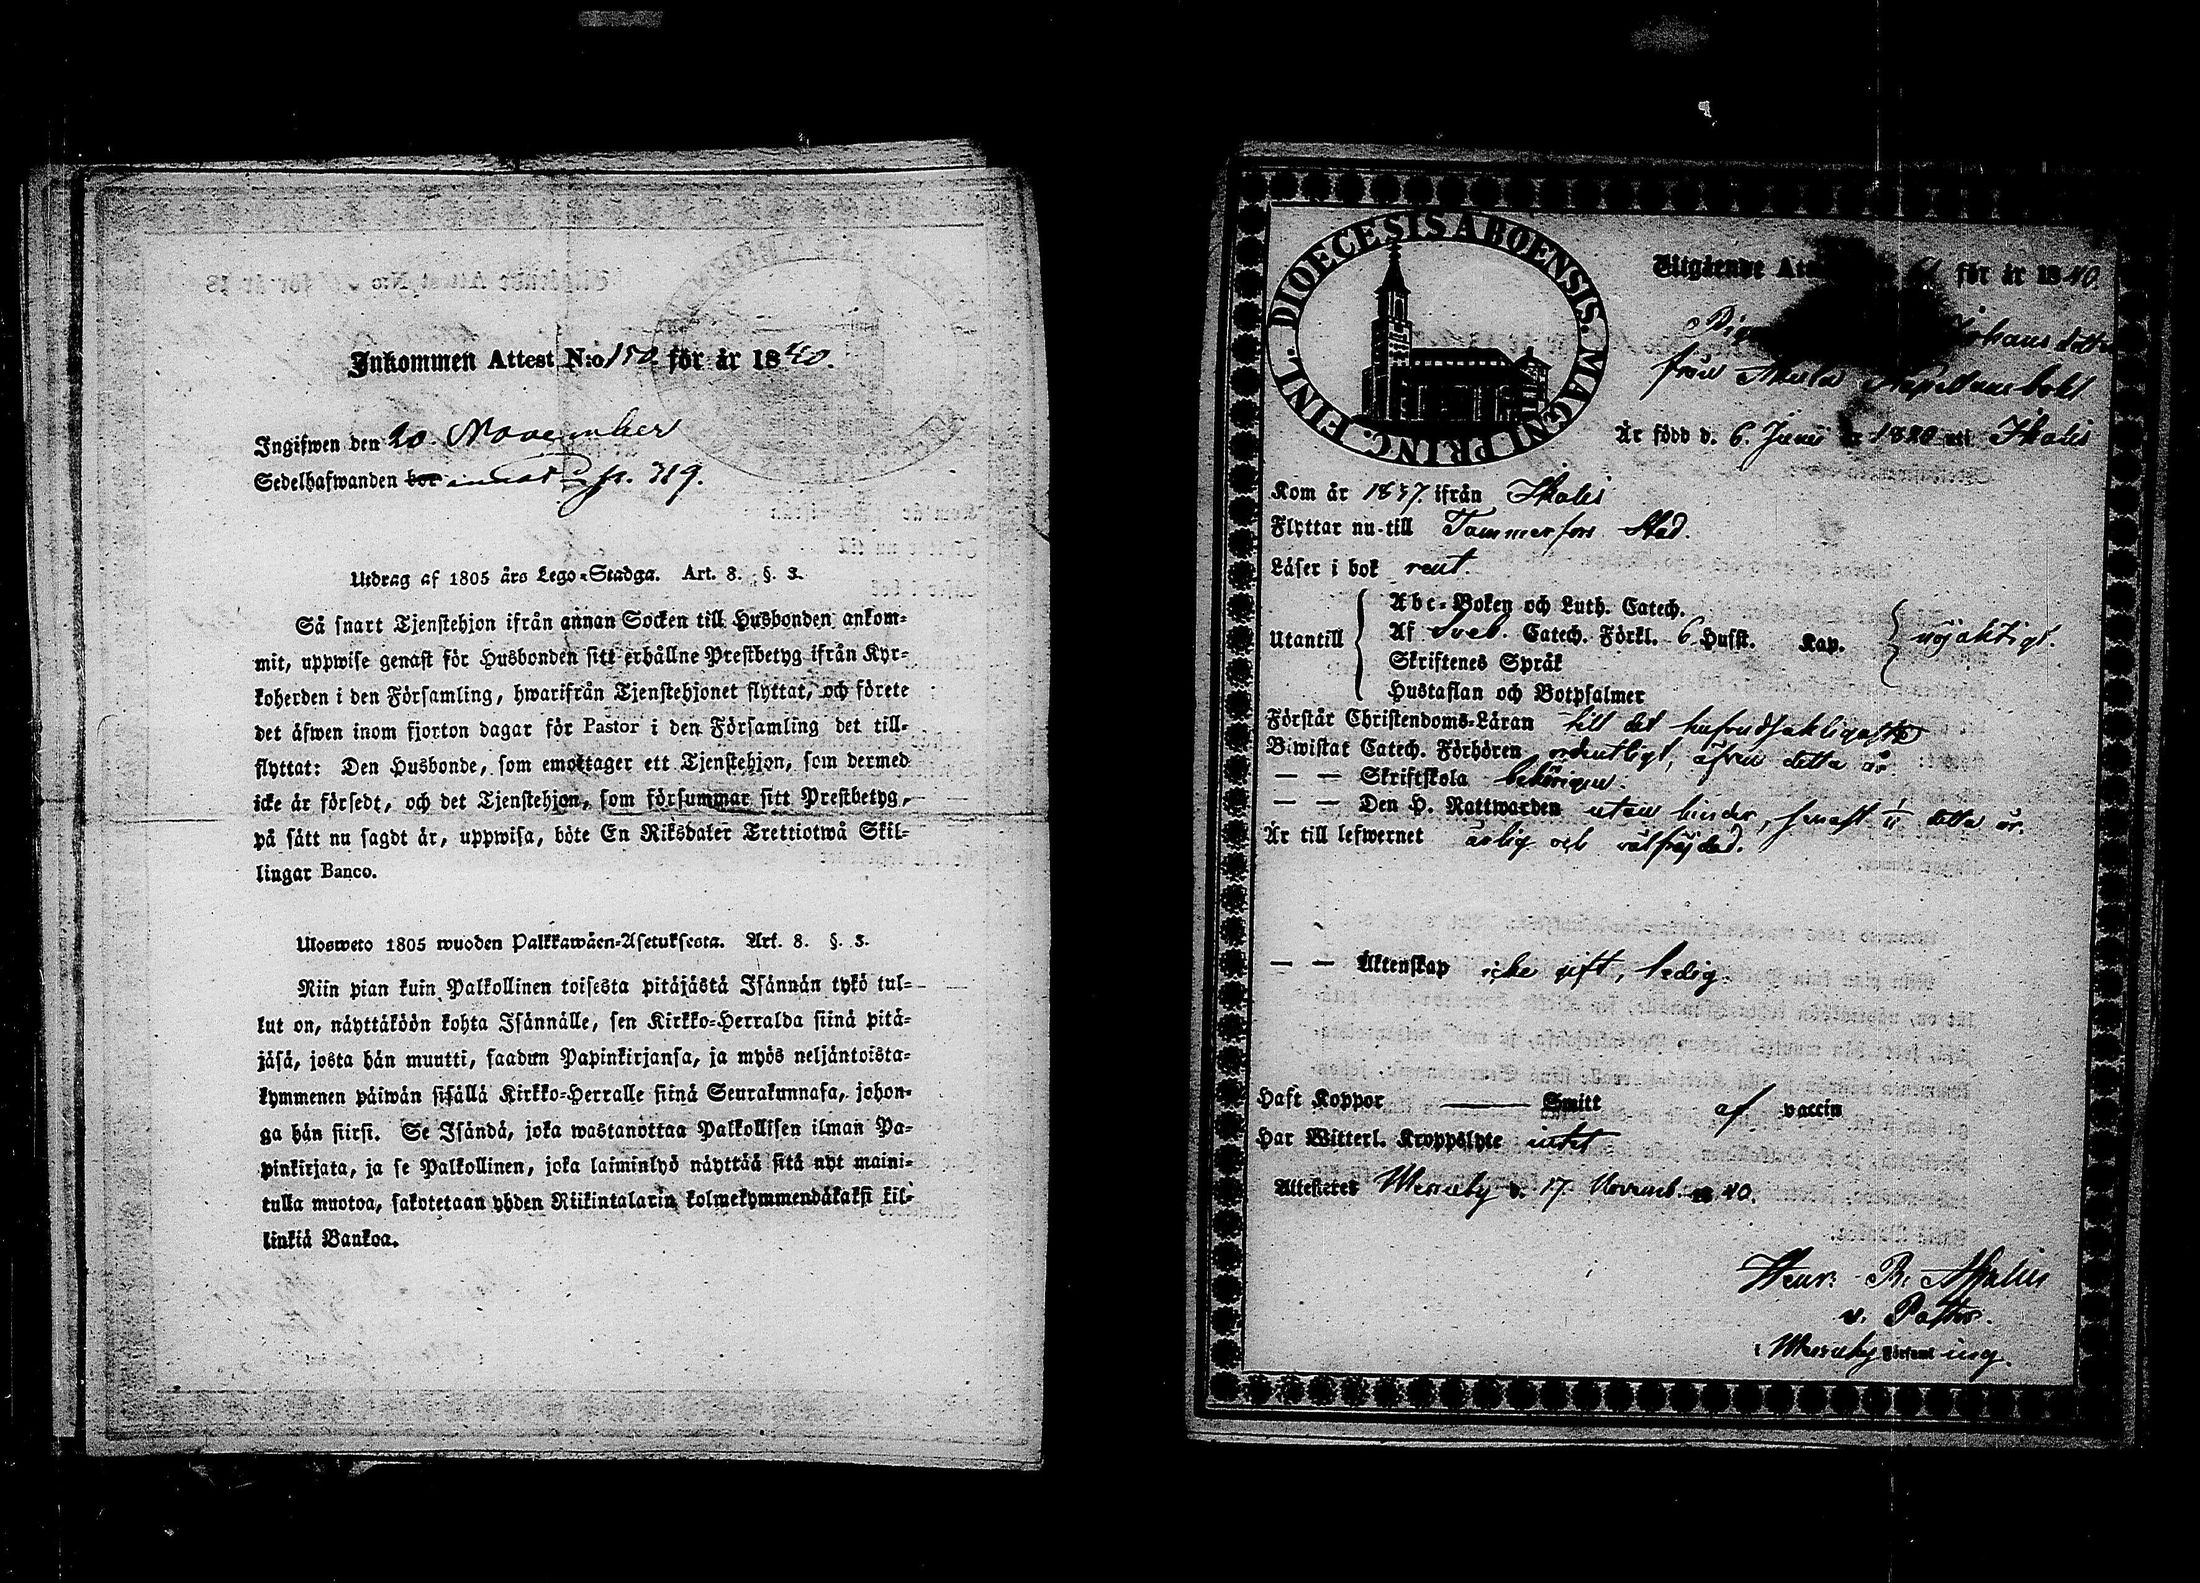 Inkommen Attest N:o 150 för år 1840.
Ingifwen den 20 November
Sedelhafwanden bor p. 319.
Utdrag af 1805 års Lego-Stadga. Art. 8. §. 3.
Så snart Tjenstehjon ifrån annan Socken till Husbonden ankom-
mit, uppwise genast för Husbonden sitt erhållne Prestbetyg ifrån Kyr-
koherden i den Församling, hwarifrån Tjenstehjonet flyttat, och förete
det äfwen inom fjorton dagar för Pastor i den Församling det till-
flyttat: Den Husbonde, som emottager ett Tjenstehjon, som dermed
icke är försedt, och det Tjenstehjon, som försummar sitt Prestbetyg,
på sätt nu sagdt är, uppwisa, böte En Riksdaler Trettiotwå Skil-
lingar Banco.
Ulosweto 1805 wuoden Palkkawäen-Asetuksesta. Art. 8. §. 3.
Niin pian kuin Palkollinen toisesta pitäjästä Isännän tykö tul-
lut on, näyttäköön kohta Isännälle, sen Kirkko-Herralda siinä pitä-
jäsä, josta hän muutti, saadun Papinkirjansa, ja myös neljäntoista-
kymmenen päiwän sisällä Kirkko-Herralle siinä Seurakunnasa, johon-
ga hän siirsi. Se Isändä, joka wastanottaa Palkollisen ilman Pa-
pinkirjata, ja se Palkollinen, joka laiminlyö näyttää sitä nyt maini-
tulla muotoa, sakotetaan yhden Riikintalarin kolmekymmendäkaksi kil-
linkiä Bankoa.
DIOECESIS ABOENSIS. MAGNI PRINC. FINL.
Utgående för år 1840.
från
Är född d. 6. Junii 1820 uti Ikalis
Kom år 1837. ifrån Ikalis
Flyttar nu till Tammerfors Stad.
Läser i bok rent.
Utantill
Abc-Boken och Luth. Catech.
Af Sveb. Catech. Förkl. 6 Husst. Kap. nöjaktigt.
Skriftenes Språk
Hustaflan och Botpsalmer
Förstår Christendoms-Läran till det hufvudsakligaste
Biwistat Catech. Förhören ordentligt, äfven detta år.
— — Skriftskola behörigen.
— — Den H. Nattwarden utan hinder, senast i detta år.
Är till lefwernet ärlig och välfrejdad.
— — Äktenskap icke gift, ledig.
Haft Koppor —— Smitt af vaccin
Har Witterl. Kroppslyte intet
Attesteras Messuby d. 17. Novemb. 1840.
Henr.
v. Pastor.
i Messuby Församling.